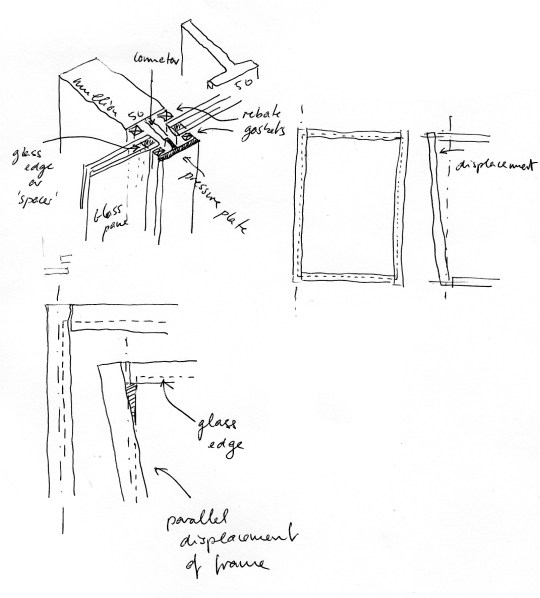 connector
mullion
50
N 50
rebate
gaskets
glass
edge
or
'spacer'
glass
pane
pressure plate
displacement
glass
edge
parallel
displacement
of frame